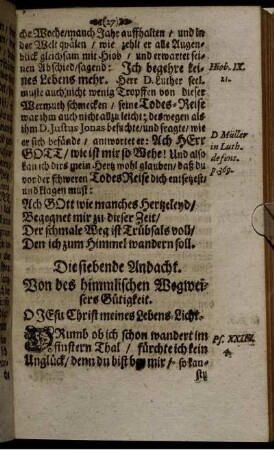 (27)
che Woche/manch Jahr auffhalten / und in
der Welt quälen / wie zehlt er alle Augen-
blick gleichsam mit Hiob / und erwartet sei-
nen Abschied/sagend: Ich begehre kei-
nes Lebens mehr. Herr D. Luther seel.
Hiob. IX.
21.
muste auch nicht wenig Tropffen von dieser
Wermuth schmecken / seine Todes-Reise
war ihm auch nicht allzu leicht; deswegen als
ihm D. Justus Jonas besuchte/und fragte/ wie
er sich befände / antwortet er: Ach HErr
GOTT / wie ist mir so Wehe! Und also
kan ich dirs mein Hertz wohl glauben/daß du
vor der schweren Todes Reise dich entsetzest
und klagen must:
D Müller
in Luth.
defens.
p 369.
Ach GOtt wie manches Hertzeleyd/
Begegnet mir zu dieser Zeit/
Der schmale Weg ist Trübsals voll/
Den ich zum Himmel wandern soll.
Die siebende Andacht.
Von des himmlischen Wegwei-
sers Gütigkeit.
O JEsu Christ meines Lebens Licht.
DRumb ob ich schon wandert im
finstern Thal / fürchte ich kein
Unglück/ denn du bist bey mir/ so kan-
Ps. XXIII.
4.
stu